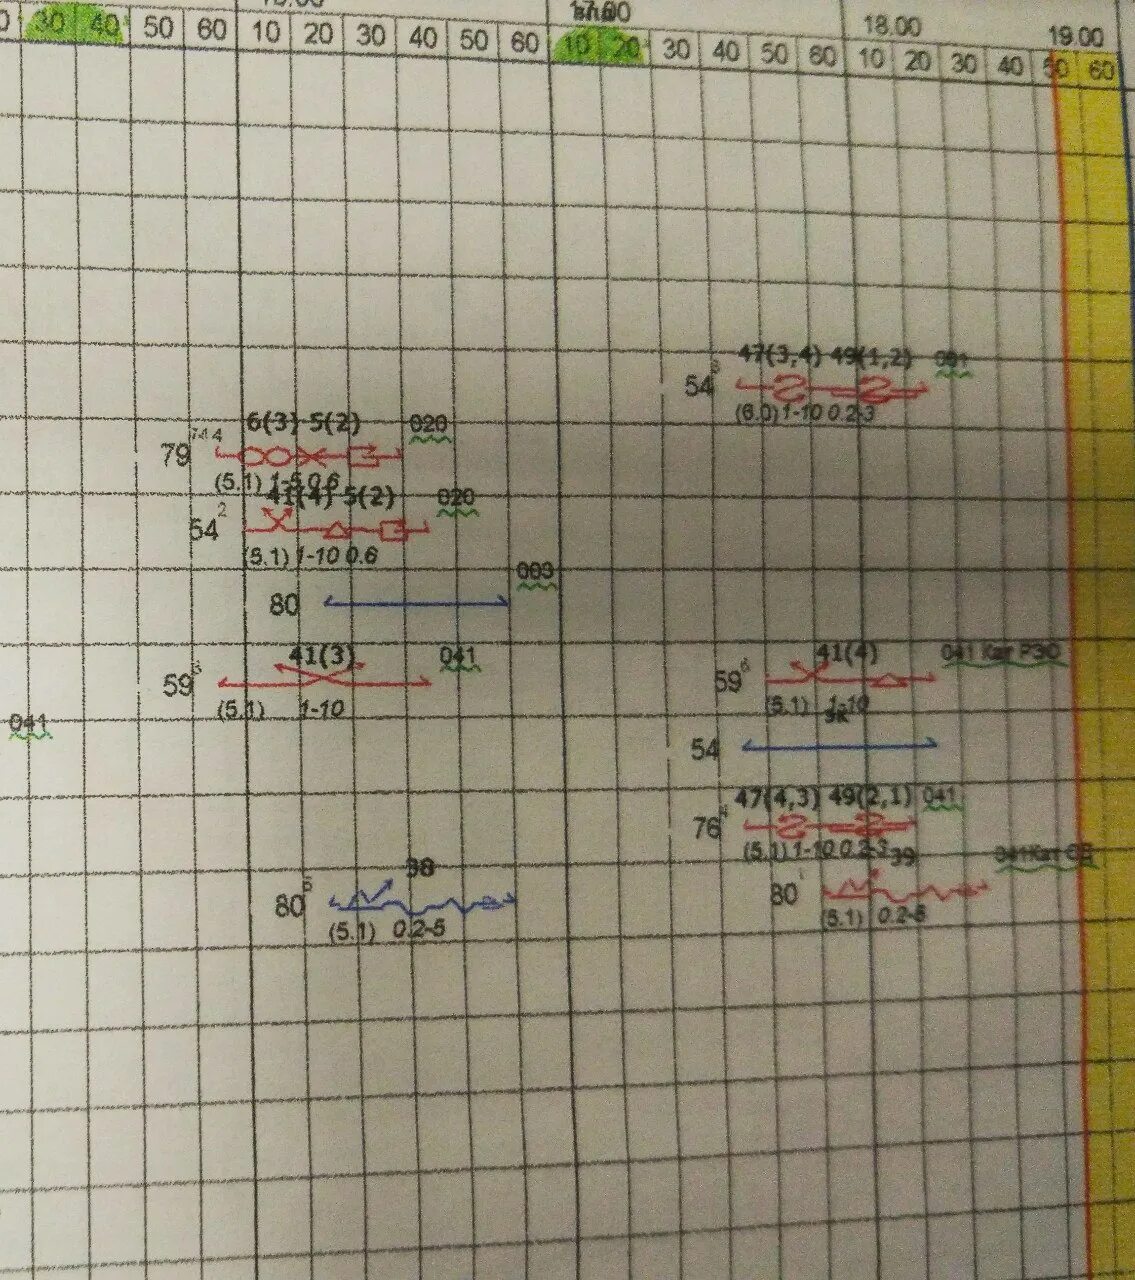 17.00 18.00 19.00
30 40 50 60 10 20 30 40 50 60 10 20 30 40 50 60 10 20 30 40 50 60
47(3,4) 49(1,2)
54
(6.0) 1-10 0.2-3
6(3) 5(2) 020
79
(5.1) 1-5 0.6
41(4) 5(2) 020
54 2
(5.1) 1-10 0.6
003
80
41(3) 041
59 3
(5.1) 1-10
41(4) 041 Кат РЭО
59 6
(5.1) 1-10
041
54
47(4,3) 49(2,1) 041
76 4
(5.1) 1-10 0.2-3
38
80 5
(5.1) 0.2-5
39
80
(5.1) 0.2-5